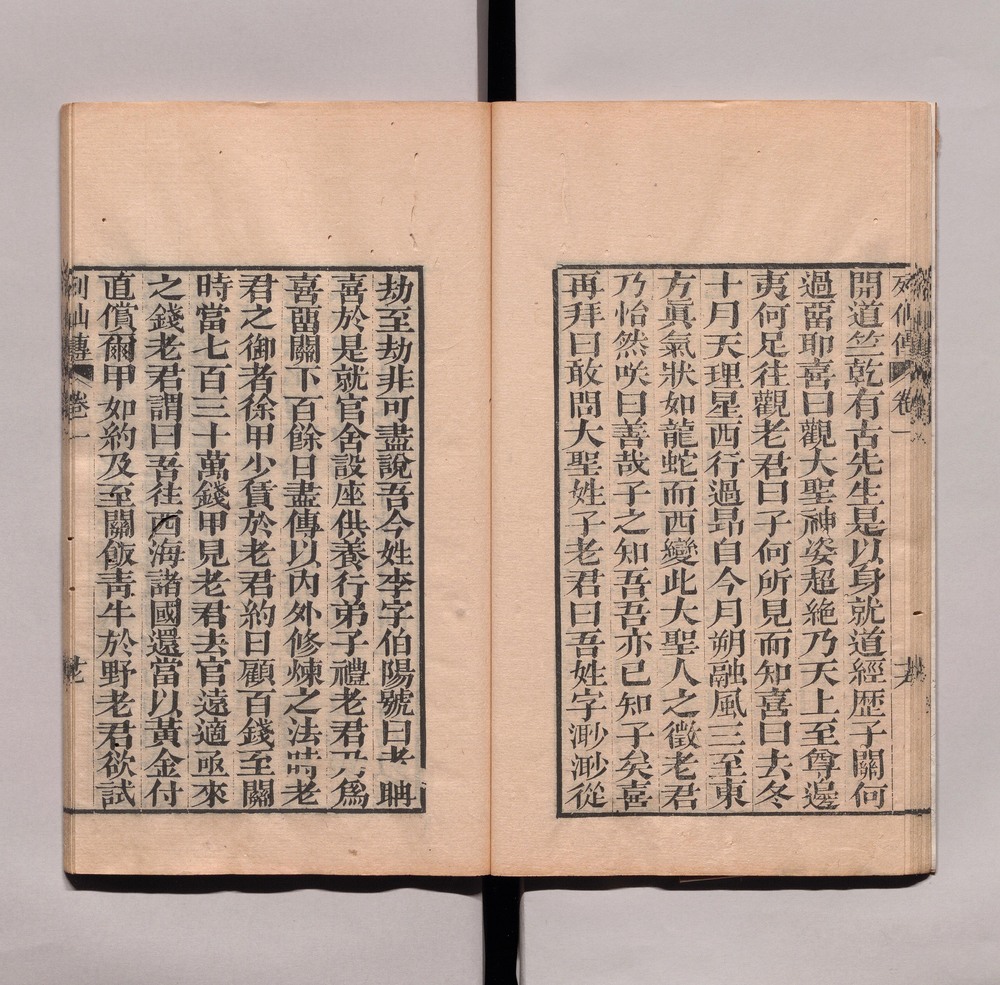 列仙傳 卷一
開道竺乾有古先生是以身就道經歷子關何
過畱耶喜曰觀大聖神姿超絶乃天上至尊邊
夷何足往觀老君曰子何所見而知喜曰去冬
十月天理星西行過昂自今月朔融風三至東
方眞氣狀如龍蛇而西變此大聖人之徵老君
乃怡然咲曰善哉子之知吾吾亦已知子矣喜
再拜曰敢問大聖姓子老君曰吾姓字渺渺從
劫至劫非可盡說吾今姓李字伯陽號曰老聃
喜於是就官舍設座供養行弟子禮老君乃爲
喜畱關下百餘日盡傳以内外修煉之法時老
君之御者徐甲少賃於老君約日顧百錢至關
時當七百三十萬錢甲見老君去官遠適亟來
之錢老君謂曰吾往西海諸國還當以黃金付
直償爾甲如約及至關飯靑牛於野老君欲試
列仙傳 卷一